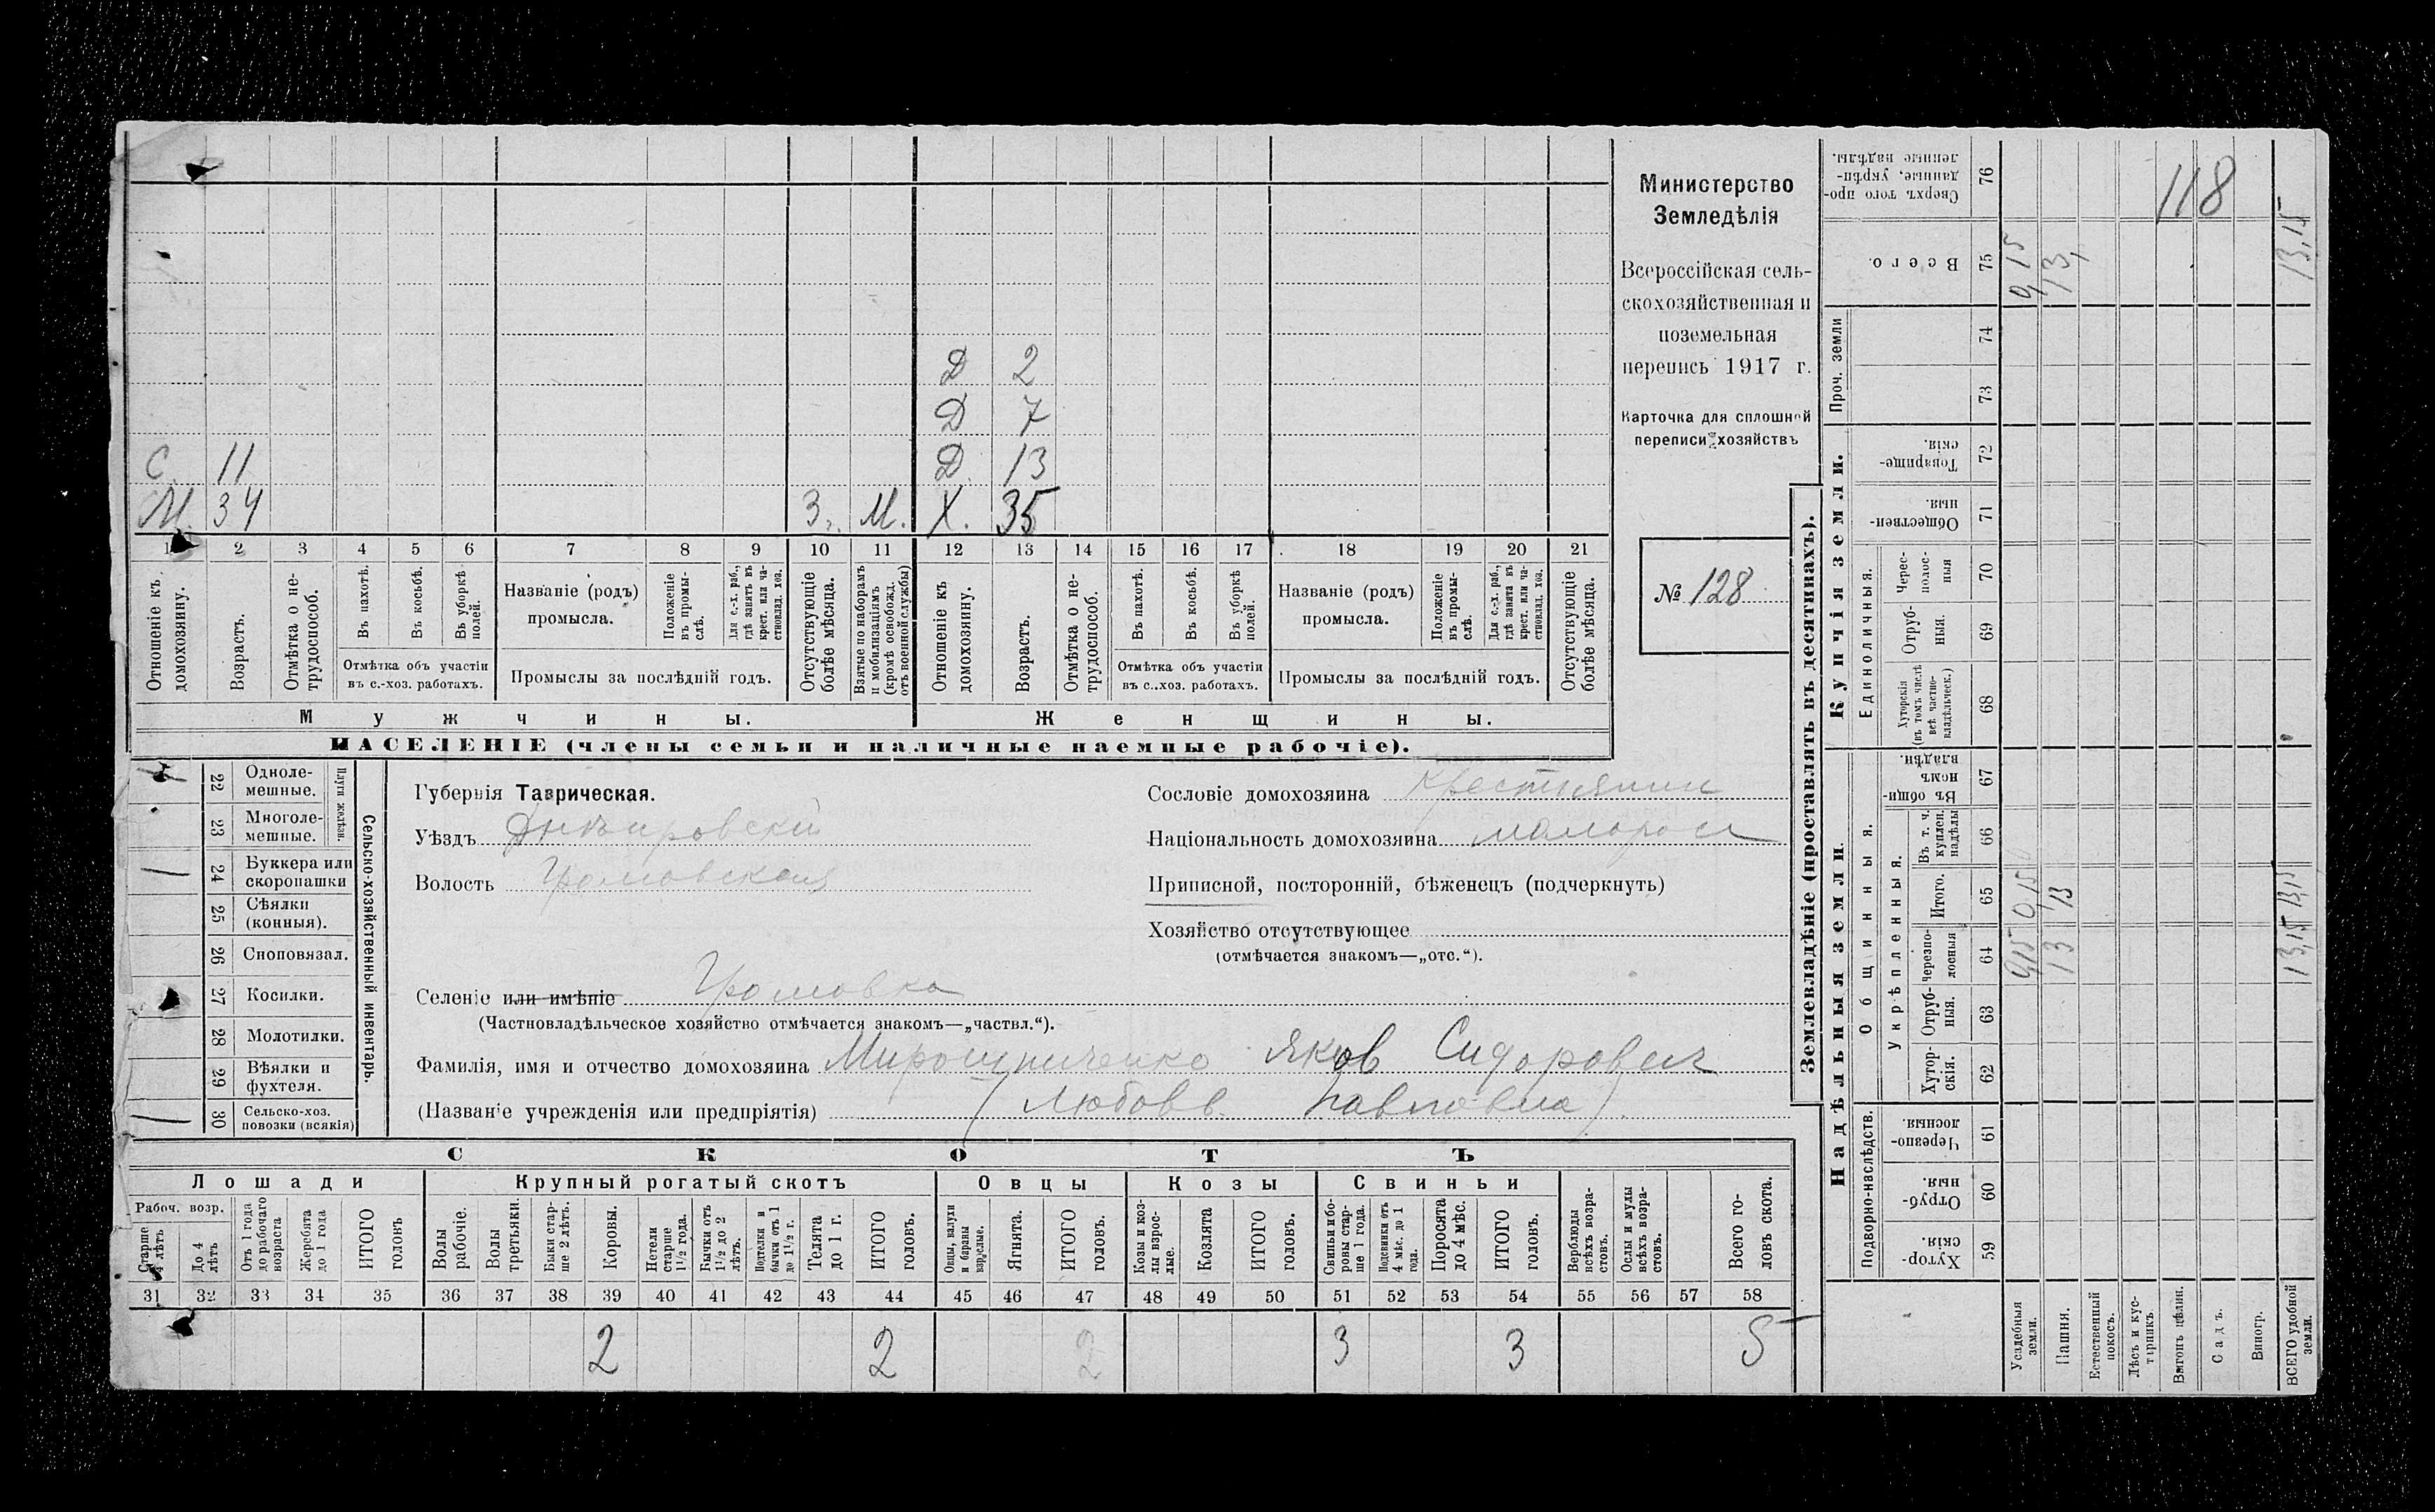 Министерство
Земледѣлія
Всероссійская сель-
скохозяйственная и
поземельная
перепись 1917 г.
Карточка для сплошной
переписи хозяйствъ
№ 128
Д 2
Д 7
С. 11 Д. 13
М. 34 3. М. X. 35
1 2 3 4 5 6 7 8 9 10 11 12 13 14 15 16 17 18 19 20 21
Отношеніе къ домохозяину.
Возрастъ.
Отмѣтка о не-трудоспособ.
Въ пахотѣ.
Въ косьбѣ.
Въ уборкѣ полей.
Отмѣтка объ участіи
въ с.-хоз. работахъ.
Названіе (родъ)
промысла.
Положеніе въ промы-слѣ.
Для с.-х. раб., гдѣ занятъ въ крест. или ча-стновлад. хоз.
Промыслы за послѣдній годъ.
Отсутствующіе болѣе мѣсяца.
Взятые по наборамъ и мобилизаціямъ (кромѣ освобожд. отъ военной службы)
Отношеніе къ домохозяину.
Возрастъ.
Отмѣтка о не-трудоспособ.
Въ пахотѣ.
Въ косьбѣ.
Въ уборкѣ полей.
Отмѣтка объ участіи
въ с..хоз. работахъ.
Названіе (родъ)
промысла.
Положеніе въ промы-слѣ.
Для с.-х. раб., гдѣ занята въ крест. или ча-стновлад. хоз.
Промыслы за послѣдній годъ.
Отсутствующіе болѣе мѣсяца.
Мужчины.
Женщины.
НАСЕЛЕНІЕ (члены семьи и наличные наемные рабочіе).
Сельско-хозяйственный инвентарь.
Плуги желѣзн.
22 Одноле-мешные.
23 Многоле-мешные.
24 Буккера или скоропашки
25 Сѣялки (конныя).
26 Сноповязал.
27 Косилки.
28 Молотилки.
29 Вѣялки и фухтеля.
30 Сельско-хоз. повозки (всякія)
Губернія Таврическая.
Уѣздъ Днѣпровскій
Волость Громовская
Селеніе или имѣніе Громовка
(Частновладѣльческое хозяйство отмѣчается знакомъ—„частвл.“).
Сословіе домохозяина Крестьянин
Національность домохозяина малоросс
Приписной, посторонній, бѣженецъ (подчеркнуть)
Хозяйство отсутствующее
(отмѣчается знакомъ—„отс.“).
Фамилія, имя и отчество домохозяина Мирошниченко Яков Сидорович
(Названіе учрежденія или предпріятія) (Любовь Павловна)
СКОТЪ
Лошади
Крупный рогатый скотъ
Овцы
Козы
Свиньи
Рабоч. возр.
Старше 4 лѣтъ
До 4 лѣтъ
Отъ 1 года до рабочаго возраста
Жеребята до 1 года
ИТОГО головъ
Волы рабочіе.
Волы третьяки.
Быки стар-ше 2 лѣтъ.
Коровы.
Нетели старше 1½ года.
Бычки отъ 1½ до 2 лѣтъ.
Подтелки и бычки отъ 1 до 1½ г.
Телята до 1 г.
ИТОГО головъ.
Овцы, валухи и бараны взрослые.
Ягнята.
ИТОГО головъ.
Козы и коз-лы взрос-лые.
Козлята
ИТОГО головъ.
Свиньи и бо-ровы стар-ше 1 года.
Подсвинки отъ 4 мѣс. до 1 года.
Поросята до 4 мѣс.
ИТОГО головъ.
Верблюды всѣхъ возра-стовъ.
Ослы и мулы всѣхъ возра-стовъ.
Всего го-ловъ скота.
31 32 33 34 35 36 37 38 39 40 41 42 43 44 45 46 47 48 49 50 51 52 53 54 55 56 57 58
2 2 2 3 3 5
Землевладѣніе (проставлять въ десятинахъ).
Надѣльныя земли
Купчія земли.
Проч. земли
Подворно-наслѣдств.
Общинныя.
Укрѣпленныя.
Единоличныя.
Сверхъ того про-данные, укрѣп-ленные надѣлы. 76
Всего. 75
74
73
Товарище-скія. 72
Обществен-ныя. 71
Черес-полос-ныя 70
Отруб-ныя. 69
Хуторскія (въ томъ числѣ всѣ частно-владѣльческ.) 68
Въ общи-номъ владѣн. 67
Въ т. ч. куплен. надѣлы 66
Итого. 65
Черезпо-лосныя 64
Отруб-ныя. 63
Хутор-скія. 62
Черезпо-лосныя 61
Отруб-ныя. 60
Хутор-скія. 59
118
Усадебныя земли. 915 0,15 9 15
Пашня. 13 13 13,
Естественный покосъ.
Лѣсъ и кус-тарникъ.
Выгонъ цѣлин.
Садъ.
Виногр.
ВСЕГО удобной земли. 13,15 13,15 13,15